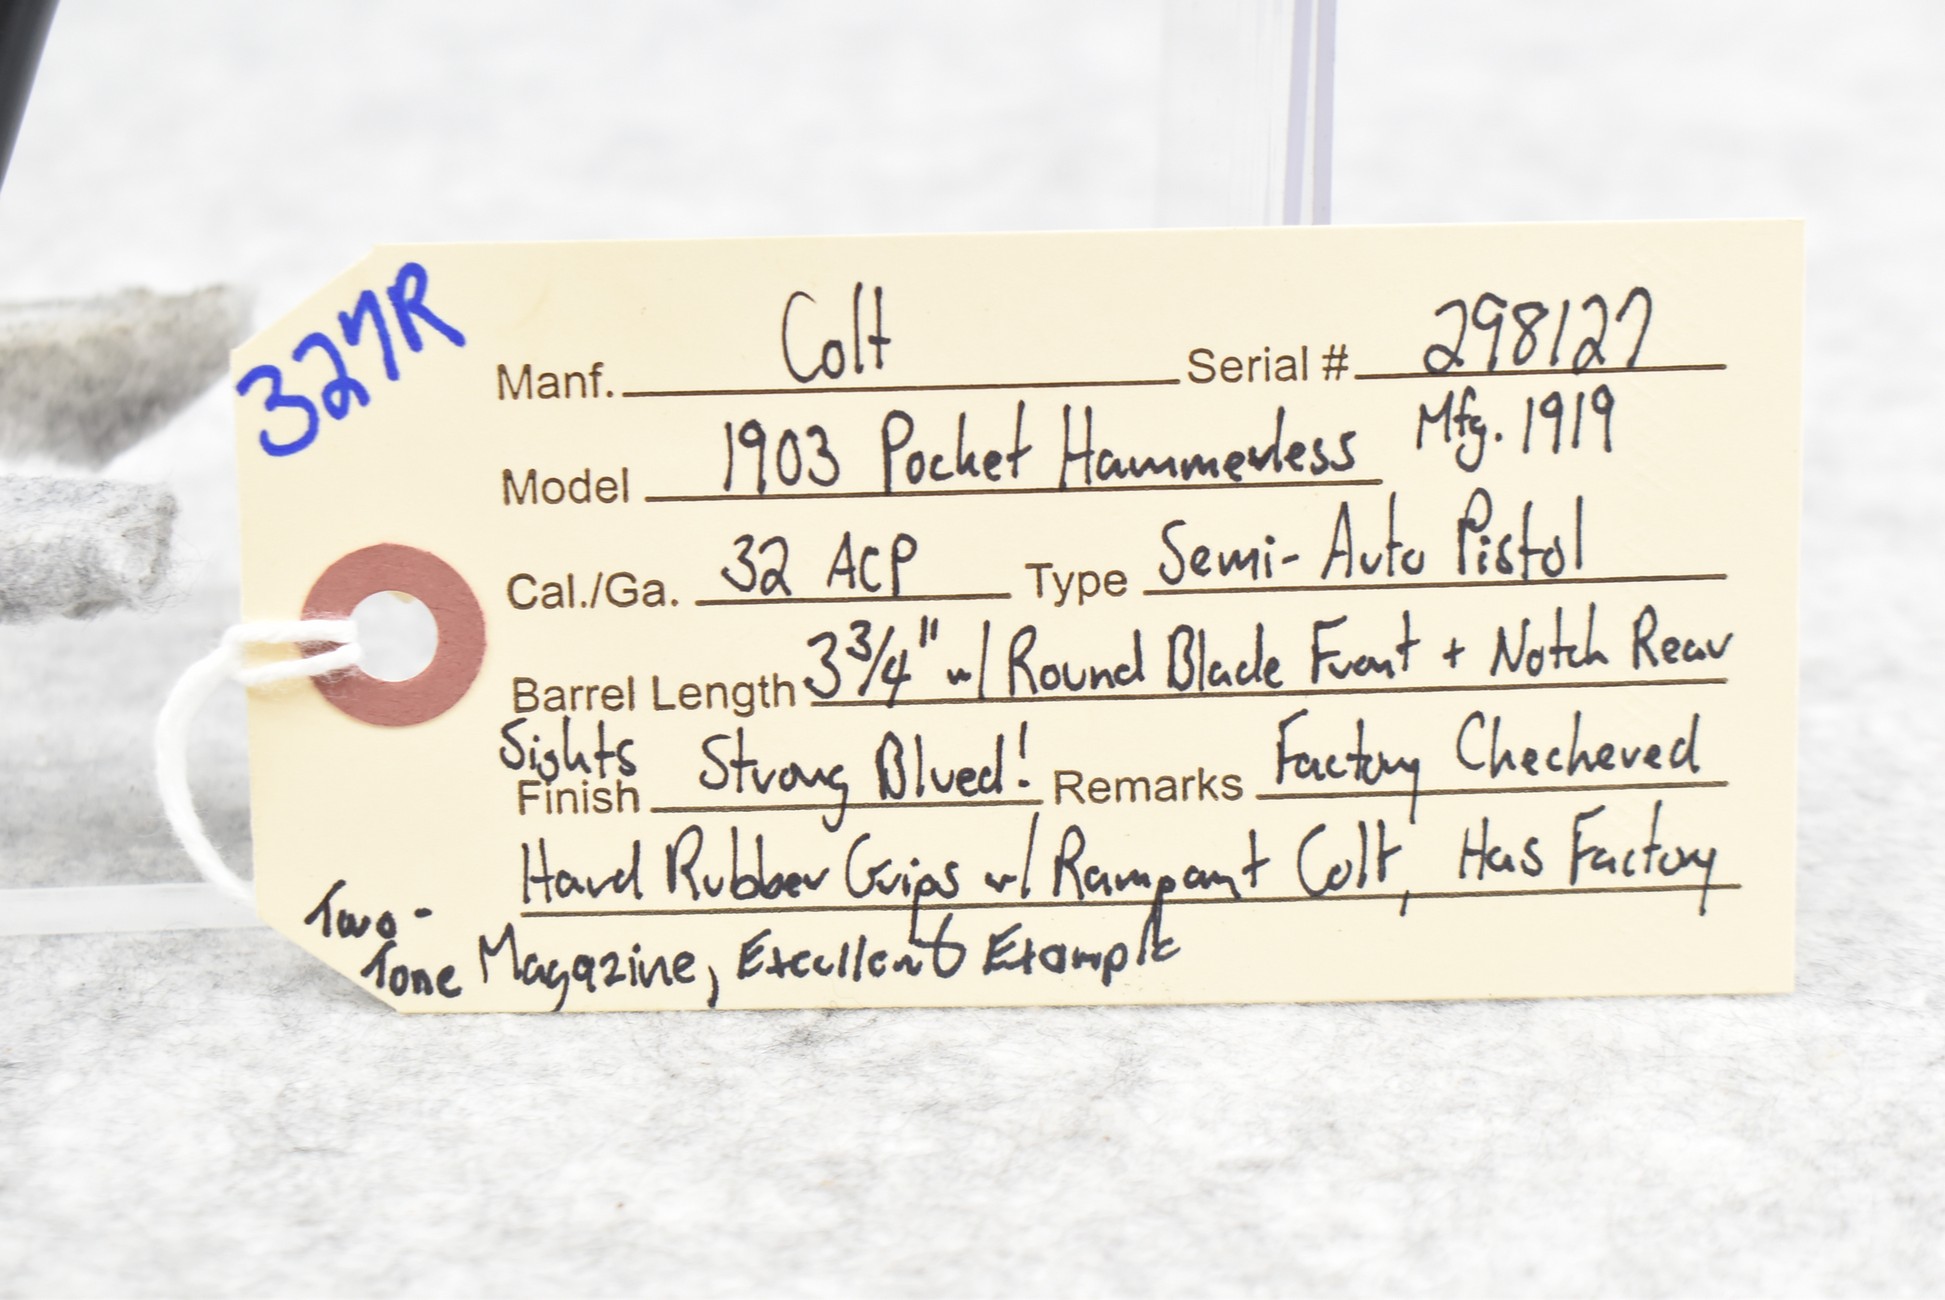 327R
Manf. Colt Serial # 298127
Model 1903 Pocket Hammerless Mfg. 1919
Cal./Ga. 32 ACP Type Semi-Auto Pistol
Barrel Length 3 3/4" w/ Round Blade Front + Notch Rear
Sights
Finish Strong Blued! Remarks Factory Checkered
Hard Rubber Grips w/ Rampant Colt, Has Factory
Two-
Tone Magazine, Excellent Example